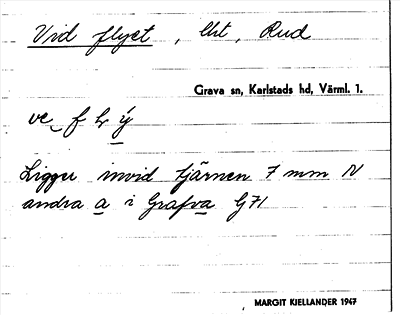 Vid flyet, lht, Rud
Grava sn, Karlstads hd, Värml. 1.
Ligger invid tjärnen 7 mm N
andra a i Grafva G71
MARGIT KJELLANDER 1947